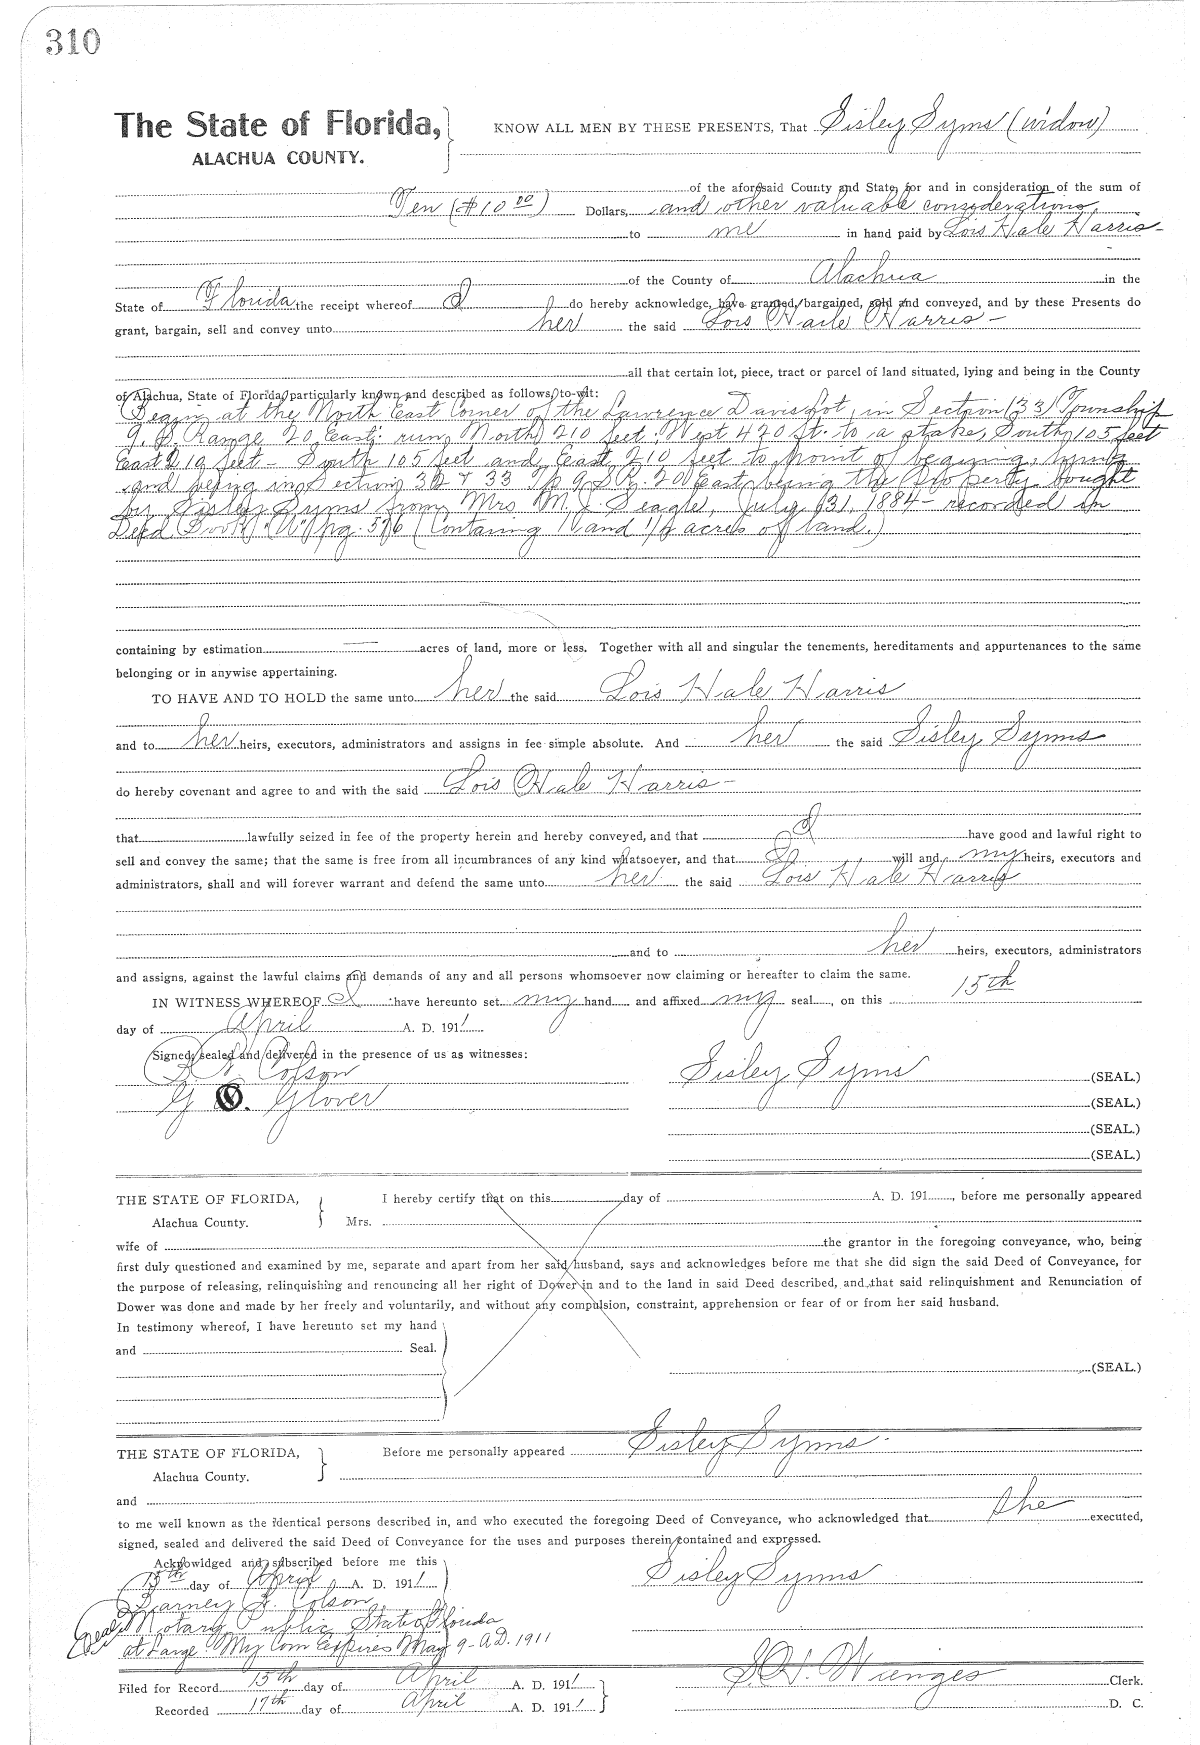 310
The State of Florida, KNOW ALL MEN BY THESE PRESENTS, That Sisley Syms (widow)
ALACHUA COUNTY.
of the aforesaid County and State, for and in consideration of the sum of
Ten ($10 00) Dollars, and other valuable considerations,
to me in hand paid by Lois Hale Harris-
of the County of Alachua in the
State of Florida the receipt whereof I do hereby acknowledge, have granted, bargained, sold and conveyed, and by these Presents do
grant, bargain, sell and convey unto her the said Lois Haile Harris-
all that certain lot, piece, tract or parcel of land situated, lying and being in the County
of Alachua, State of Florida, particularly known and described as follows, to-wit:
Begin at the North East Corner of the Lawrence Davis Lot, in Section (33) Township
9. S. Range 20 East: run North 210 feet: West 420 ft. to a stake, South 105 feet
East 210 feet - South 105 feet and East 210 feet to point of begining, lying
and being in Section 32 & 33 Tp 9 S R. 20 East, being the property bought
by Sisley Syms from Mrs. M. J. Seagle, July 31, 1884 - recorded in
Deed Book "W" pg. 576 (Containg 1 and 1/2 acres of land.)
containing by estimation acres of land, more or less. Together with all and singular the tenements, hereditaments and appurtenances to the same
belonging or in anywise appertaining.
TO HAVE AND TO HOLD the same unto her the said Lois Hale Harris
and to her heirs, executors, administrators and assigns in fee simple absolute. And her the said Sisley Syms
do hereby covenant and agree to and with the said Lois Hale Harris-
that lawfully seized in fee of the property herein and hereby conveyed, and that I have good and lawful right to
sell and convey the same; that the same is free from all incumbrances of any kind whatsoever, and that I will and my heirs, executors and
administrators, shall and will forever warrant and defend the same unto her the said Lois Hale Harris
and to her heirs, executors, administrators
and assigns, against the lawful claims and demands of any and all persons whomsoever now claiming or hereafter to claim the same.
IN WITNESS WHEREOF I have hereunto set my hand and affixed my seal, on this 15th
day of April A. D. 1911
Signed, sealed and delivered in the presence of us as witnesses:
Colson Sisley Syms (SEAL.)
G Glover (SEAL.)
(SEAL.)
(SEAL.)
THE STATE OF FLORIDA, I hereby certify that on this day of A. D. 191, before me personally appeared
Alachua County. Mrs.
wife of the grantor in the foregoing conveyance, who, being
first duly questioned and examined by me, separate and apart from her said husband, says and acknowledges before me that she did sign the said Deed of Conveyance, for
the purpose of releasing, relinquishing and renouncing all her right of Dower in and to the land in said Deed described, and that said relinquishment and Renunciation of
Dower was done and made by her freely and voluntarily, and without any compulsion, constraint, apprehension or fear of or from her said husband.
In testimony whereof, I have hereunto set my hand
and Seal.
(SEAL.)
THE STATE OF FLORIDA, Before me personally appeared Sisley Syms.
Alachua County.
and
to me well known as the identical persons described in, and who executed the foregoing Deed of Conveyance, who acknowledged that she executed,
signed, sealed and delivered the said Deed of Conveyance for the uses and purposes therein contained and expressed.
Acknowldged and subscribed before me this
15th day of April A. D. 1911 Sisley Syms
Barney R. Colson
(Seal) Notary Public State of Florida
at Large. My Com Expires May 9- A.D. 1911
Filed for Record 15th day of April A. D. 1911 S. H. Wienges Clerk.
Recorded 17th day of April A. D. 1911 D. C.